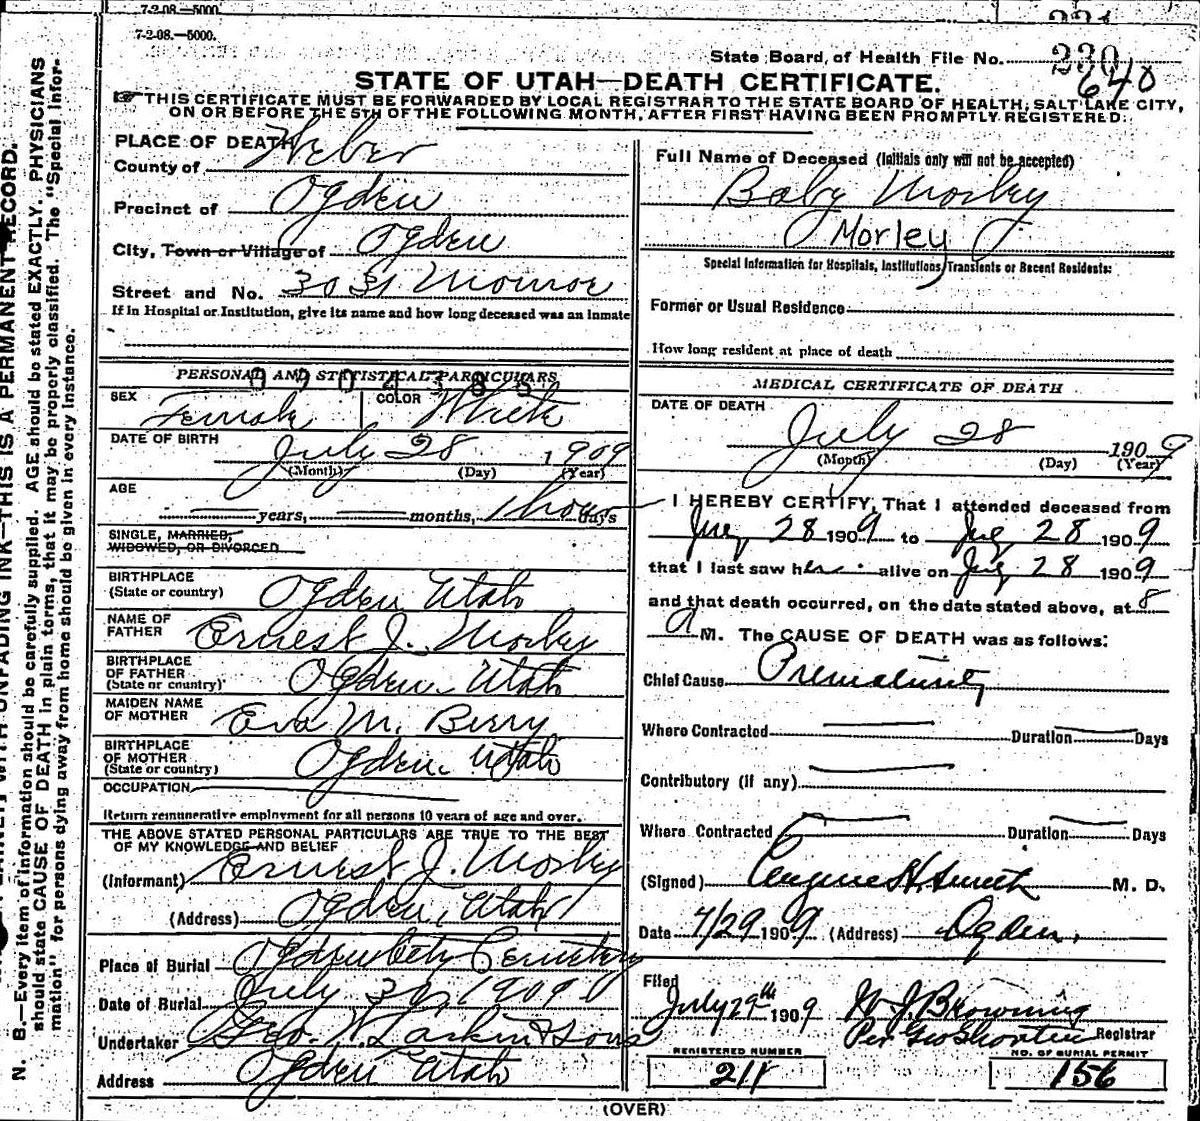 7-2-08.—5000.
7-2-08.—5000.
State Board of Health File No. 230
640
STATE OF UTAH—DEATH CERTIFICATE.
THIS CERTIFICATE MUST BE FORWARDED BY LOCAL REGISTRAR TO THE STATE BOARD OF HEALTH, SALT LAKE CITY,
ON OR BEFORE THE 5TH OF THE FOLLOWING MONTH, AFTER FIRST HAVING BEEN PROMPTLY REGISTERED.
PLACE OF DEATH
County of Weber
Precinct of Ogden
City, Town or Village of Ogden
Street and No. 3031 Monroe
If in Hospital or Institution, give its name and how long deceased was an inmate
PERSONAL AND STATISTICAL PARTICULARS
0904385
SEX Female COLOR White
DATE OF BIRTH July 28 1909
(Month) (Day) (Year)
AGE
years, months, 1 hour days
SINGLE, MARRIED,
WIDOWED, OR DIVORCED
BIRTHPLACE
(State or country) Ogden Utah
NAME OF
FATHER Ernest J. Morley
BIRTHPLACE
OF FATHER
(State or country) Ogden Utah
MAIDEN NAME
OF MOTHER Eva M. Berry
BIRTHPLACE
OF MOTHER
(State or country) Ogden Utah
OCCUPATION
Return remunerative employment for all persons 10 years of age and over.
THE ABOVE STATED PERSONAL PARTICULARS ARE TRUE TO THE BEST
OF MY KNOWLEDGE AND BELIEF
(Informant) Ernest J. Morley
(Address) Ogden, Utah
Place of Burial Ogden City Cemetery
Date of Burial July 30, 1909
Undertaker Geo. W. Larkin & Sons
Address Ogden Utah
Full Name of Deceased (Initials only will not be accepted)
Baby Morley
Morley
Special Information for Hospitals, Institutions, Transients or Recent Residents:
Former or Usual Residence
How long resident at place of death
MEDICAL CERTIFICATE OF DEATH
DATE OF DEATH
July 28 1909
(Month) (Day) (Year)
I HEREBY CERTIFY, That I attended deceased from
July 28 1909 to July 28 1909
that I last saw her alive on July 28 1909
and that death occurred, on the date stated above, at 8
A M. The CAUSE OF DEATH was as follows:
Chief Cause Prematurity
Where Contracted Duration Days
Contributory (if any)
Where Contracted Duration Days
(Signed) Eugene H. Smith M. D.
Date 7/29 1909 (Address) Ogden,
Filed
July 29th 1909 W J Browning
Per Geo Shorten Registrar
REGISTERED NUMBER
211
NO. OF BURIAL PERMIT
156
(OVER)
N. B.—Every item of information should be carefully supplied. AGE should be stated EXACTLY. PHYSICIANS
should state CAUSE OF DEATH in plain terms, that it may be properly classified. The "Special Infor-
mation" for persons dying away from home should be given in every instance.
WITH UNFADING INK—THIS IS A PERMANENT RECORD.